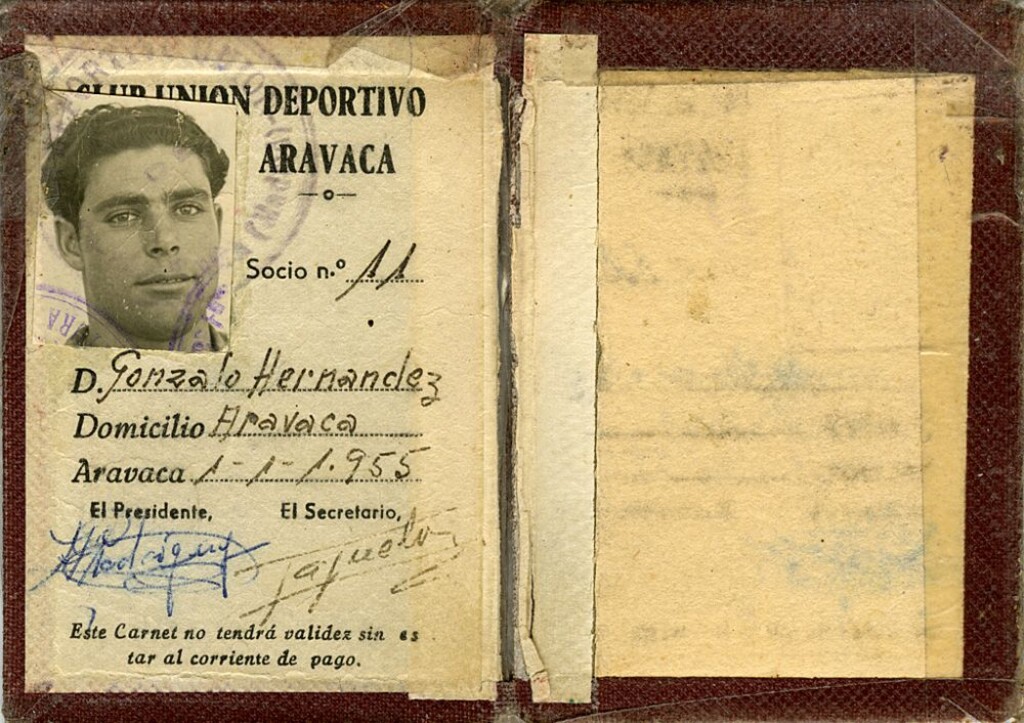 CLUB UNION DEPORTIVO
ARAVACA
Socio n.º 11
D. Gonzalo Hernandez
Domicilio Aravaca
Aravaca 1-1-1.955
El Presidente, El Secretario,
Este Carnet no tendrá validez sin es
tar al corriente de pago.